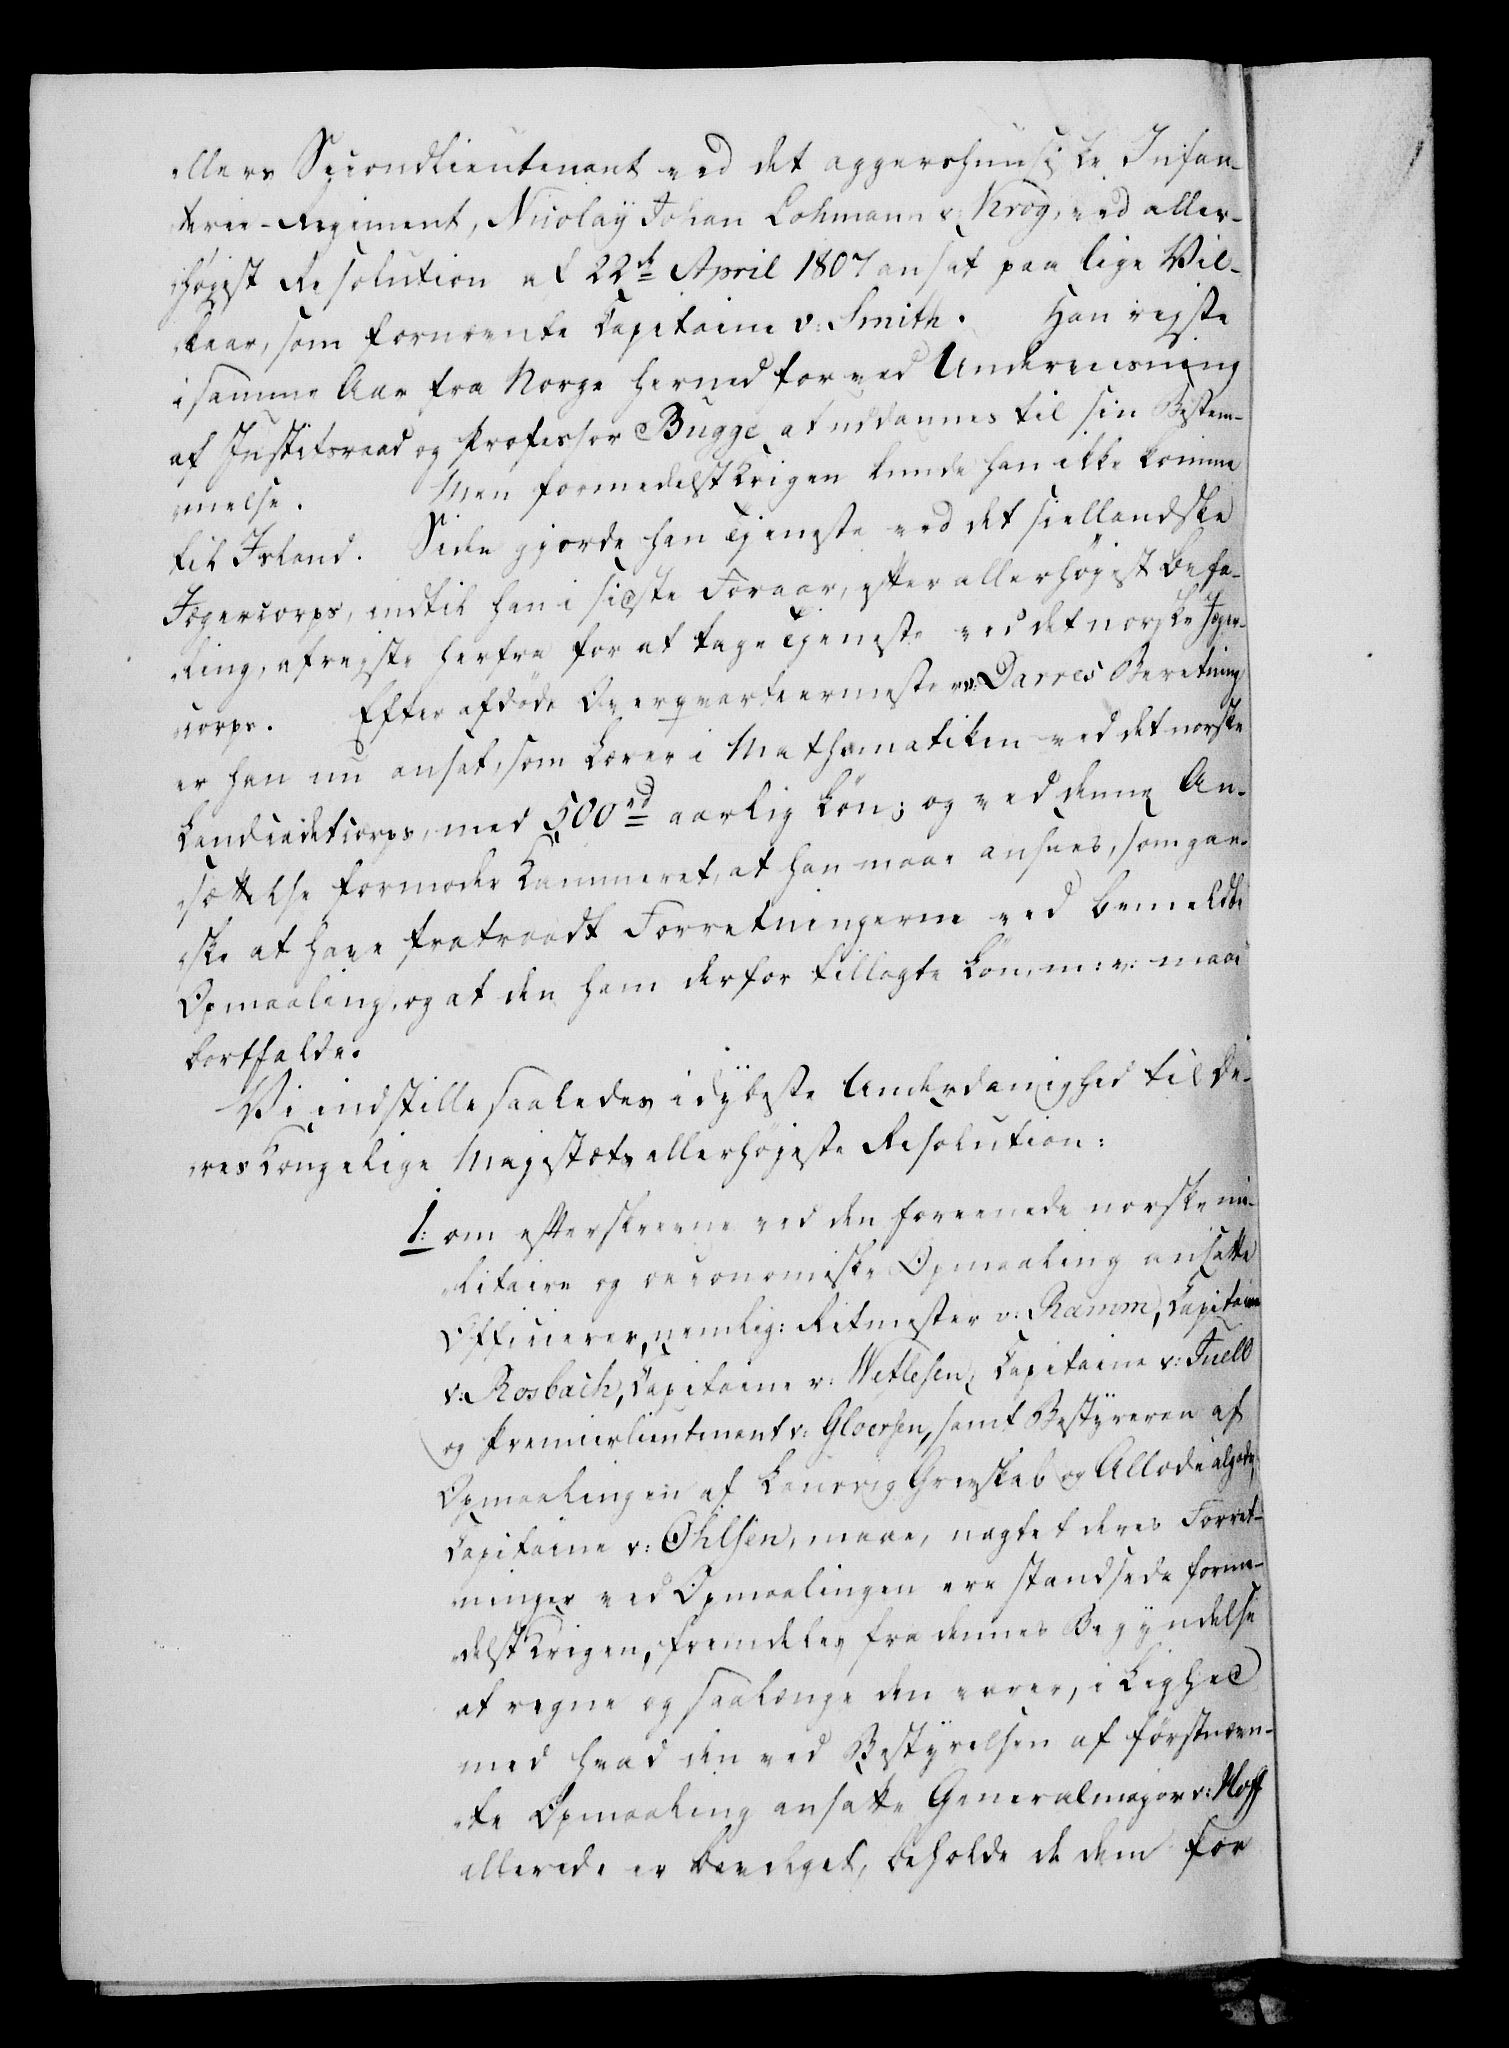 ellers Secondlieutenant ved det aggershuusiske Infan-
terie-Regiment, Nicolaÿ Johan Lohmann v: Krog, ved aller-
højest Resolution af 22de April 1807 ansat paa lige Vil-
kaar, som fornævnte Capitaine v: Smith. Han rejste
i samme Aar fra Norge herned for ved Underviisning
af Justitsraad og Professor Bugge at uddannes til sin Bestem-
melse. Men formedelst Krigen kunde han ikke komme
til Island. Siden gjorde han Tjeneste ved det siellandske
Jægercorps, indtil han i sidste Foraar, efter allerhøjest Befa-
ling, afrejste herfra for at tage Tjeneste ved det norske Jæger-
corps. Efter afdøde Overqvarteermester v: Darres Beretning
er han nu ansat, som Lærer i Mathematiken ved det norske
Landcadetcorps, med 500 rd aarlig Løn; og ved denne An-
sættelse formoder Kammeret, at han maae ansees, som gan-
ske at have fratraadt Forretningerne ved bemeldte
Opmaaling, og at den ham derfor tillagte Løn m: v: maae
bortfalde.
Vi indstille saaledes i dybeste Underdanighed til De-
res Kongelige Majestæts allerhøjeste Resolution:
1: om efterskrevne ved den foreenede norske mi-
litaire og oeconomiske Opmaaling ansatte
Officierer, nemlig: Ritmester v: Ramm, Capitaine
v: Rosbach, Capitaine v: Wetlesen, Capitaine v: Juell
og Premierlieutenant v: Gloersen, samt Bestyreren af
Opmaalingen af Laurvig Grevskab og Allodialgods,
Capitaine v: Ohlsen, maae, uagtet deres Forret-
ninger ved Opmaalingen ere standsede forme-
delst Krigen, fremdeles fra dennes Begyndelse
at regne og saalænge den varer, i Lighed
med hvad den ved Bestyrelsen af førstnævn-
te Opmaaling ansatte Generalmajor v: Hoff
allerede er bevilget, beholde de dem for